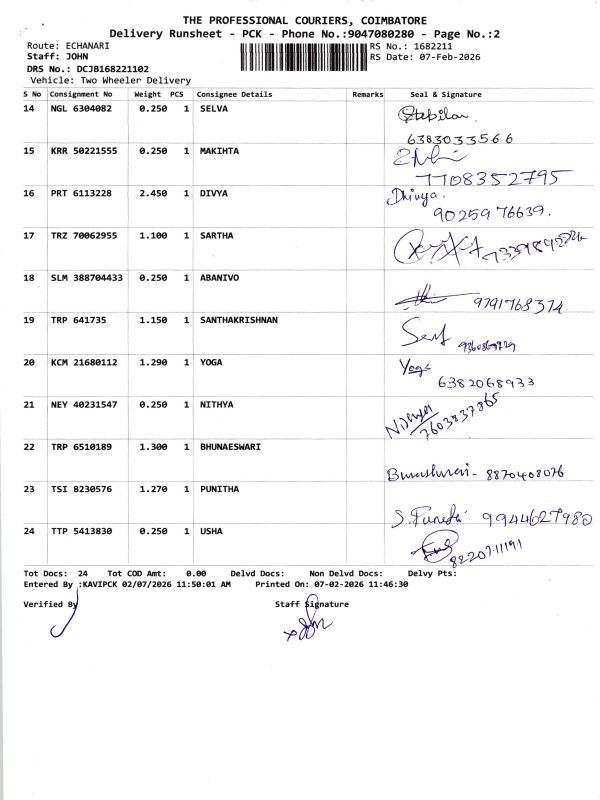 THE PROFESSIONAL COURIERS, COIMBATORE
Delivery Runsheet - PCK - Phone No.:9047080280 - Page No.:2
Route: ECHANARI RS No.: 1682211
Staff: JOHN RS Date: 07-Feb-2026
DRS No.: DCJB168221102
Vehicle: Two Wheeler Delivery
S No Consignment No Weight PCS Consignee Details Remarks Seal & Signature
14 NGL 6304082 0.250 1 SELVA
6383033566
15 KRR 50221555 0.250 1 MAKIHTA
7708352795
16 PRT 6113228 2.450 1 DIVYA Dhivya.
9025976639.
17 TRZ 70062955 1.100 1 SARTHA
18 SLM 388704433 0.250 1 ABANIVO
9791768374
19 TRP 641735 1.150 1 SANTHAKRISHNAN
20 KCM 21680112 1.290 1 YOGA Yoga
6382068933
21 NEY 40231547 0.250 1 NITHYA
7603837865
22 TRP 6510189 1.300 1 BHUNAESWARI
8870408076
23 TSI 8230576 1.270 1 PUNITHA
9944627980
24 TTP 5413830 0.250 1 USHA
Tot Docs: 24 Tot COD Amt: 0.00 Delvd Docs: Non Delvd Docs: Delvy Pts:
Entered By :KAVIPCK 02/07/2026 11:50:01 AM Printed On: 07-02-2026 11:46:30
Verified By Staff Signature